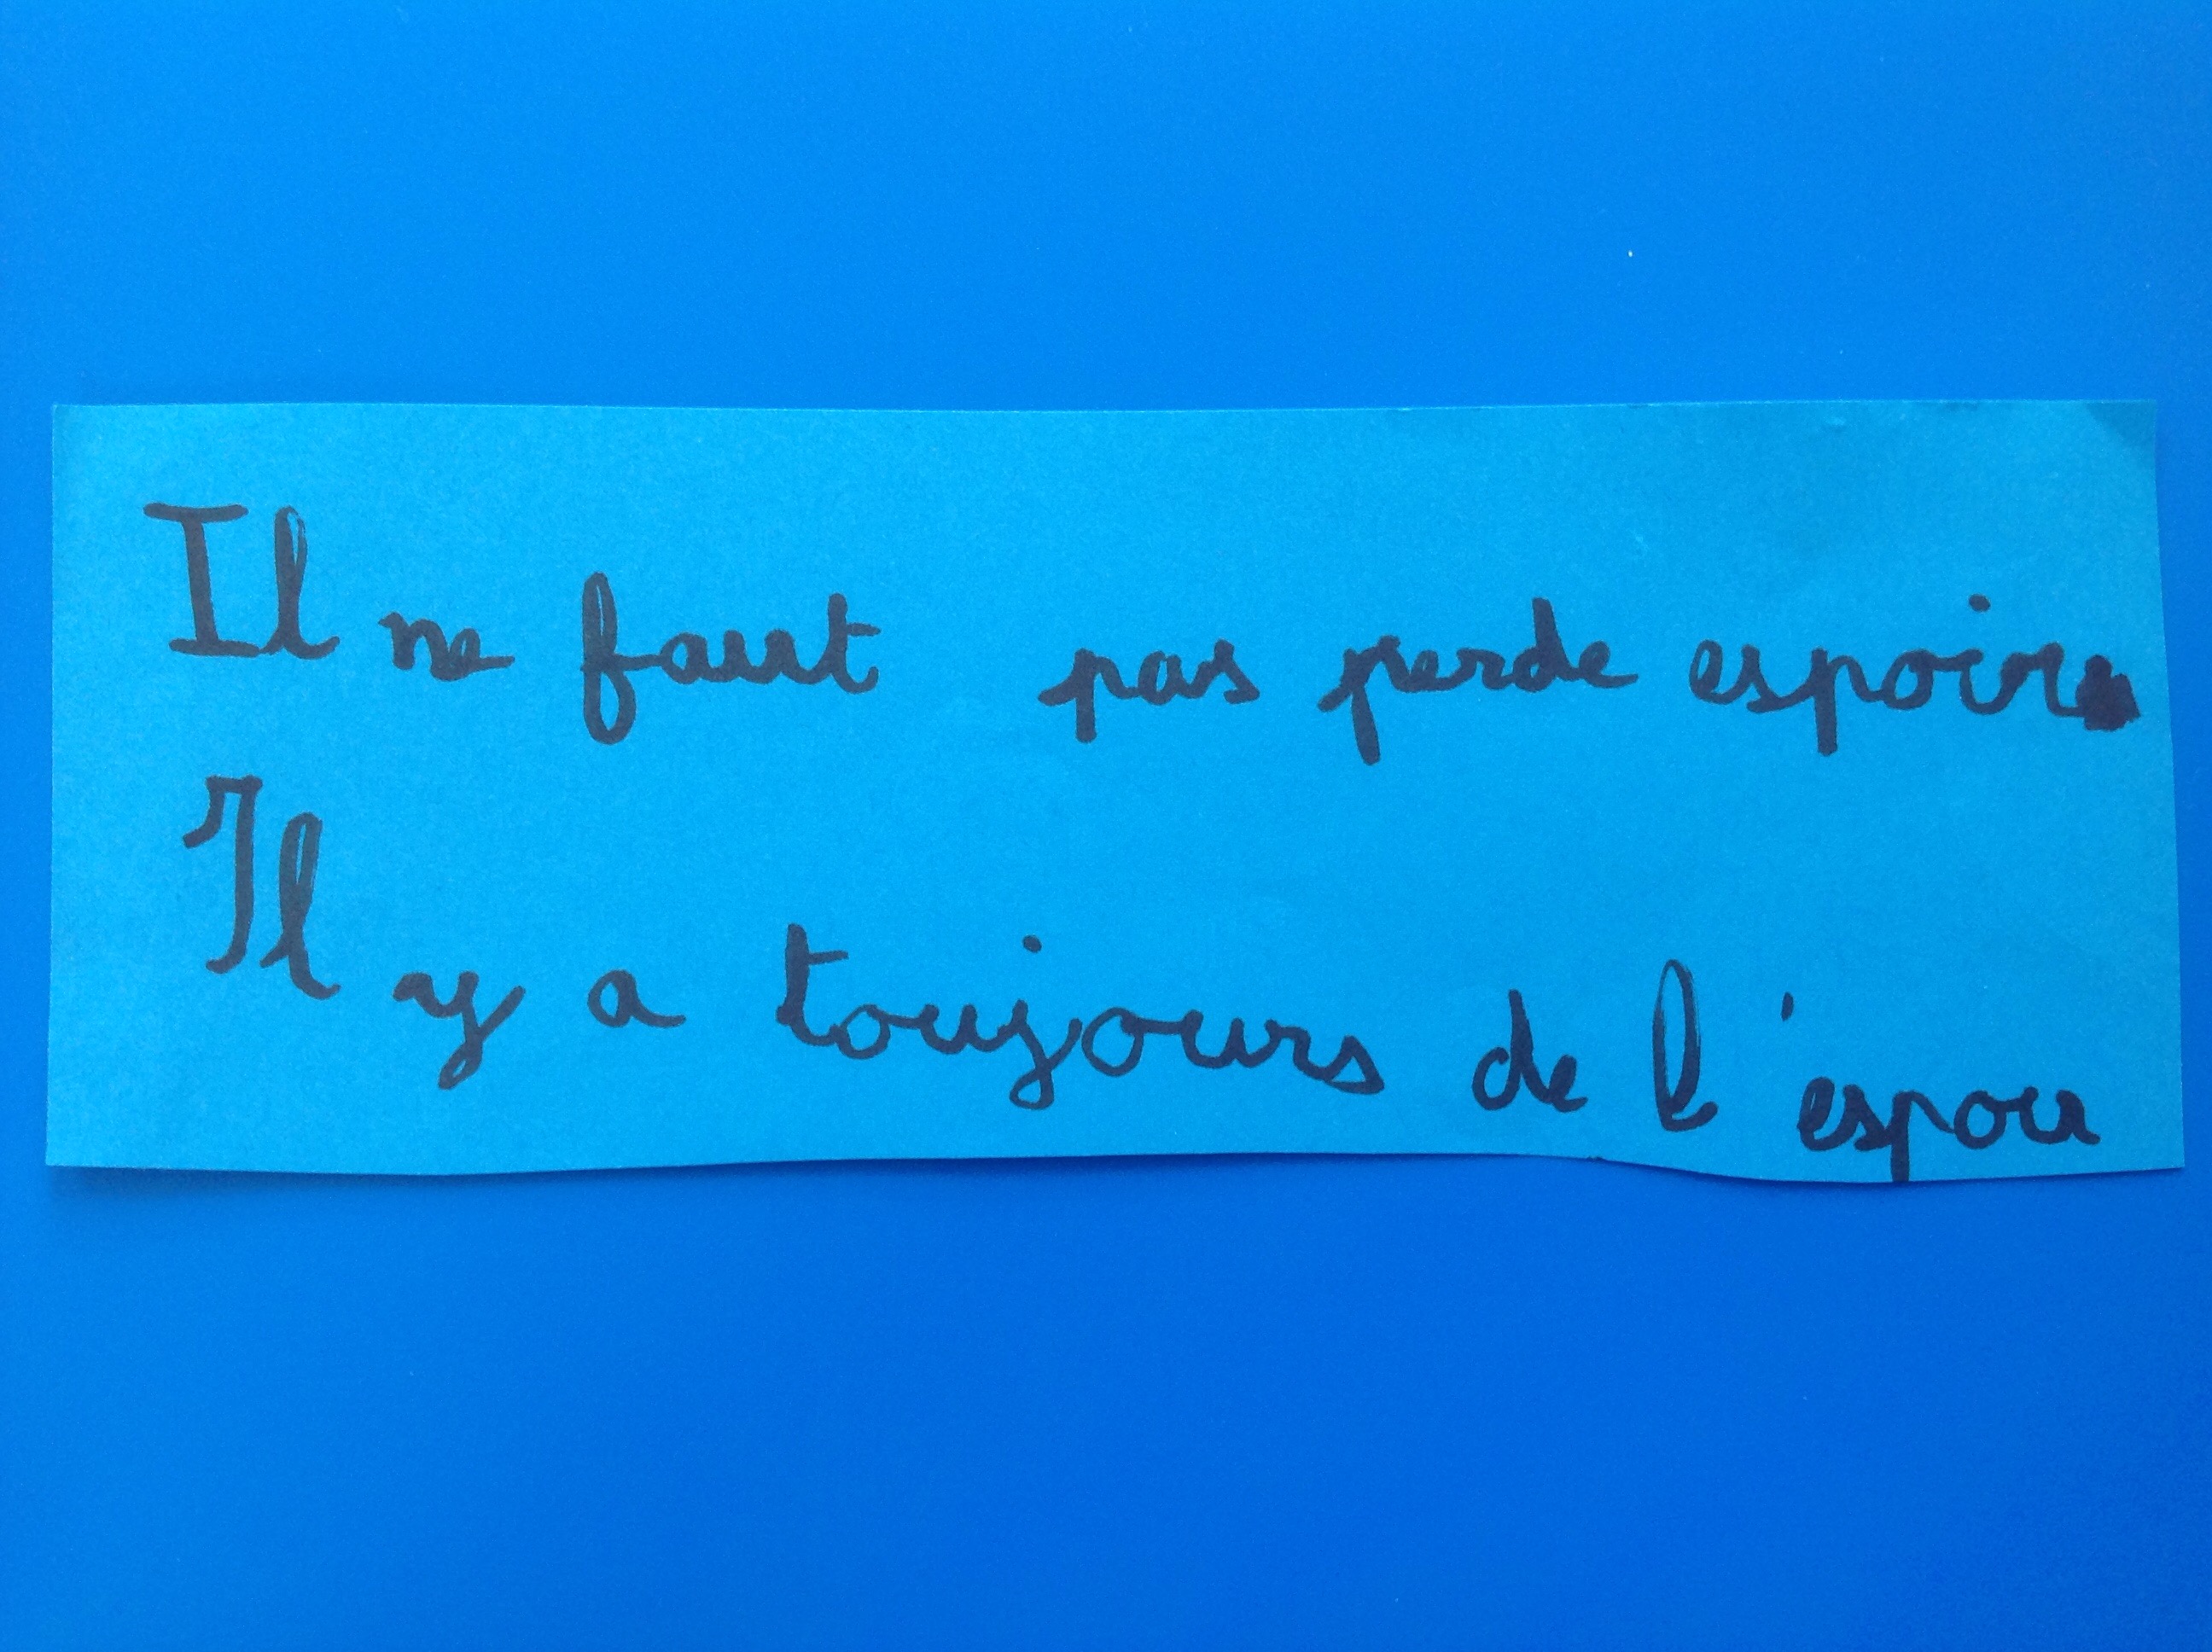 Il ne faut pas perde espoir
Il y a toujours de l'espoir